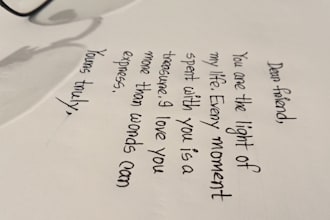 Dear friend,
You are the light of
my life. Every moment
spent with you is a
treasure. I love you
more than words can
express.
Yours truly,